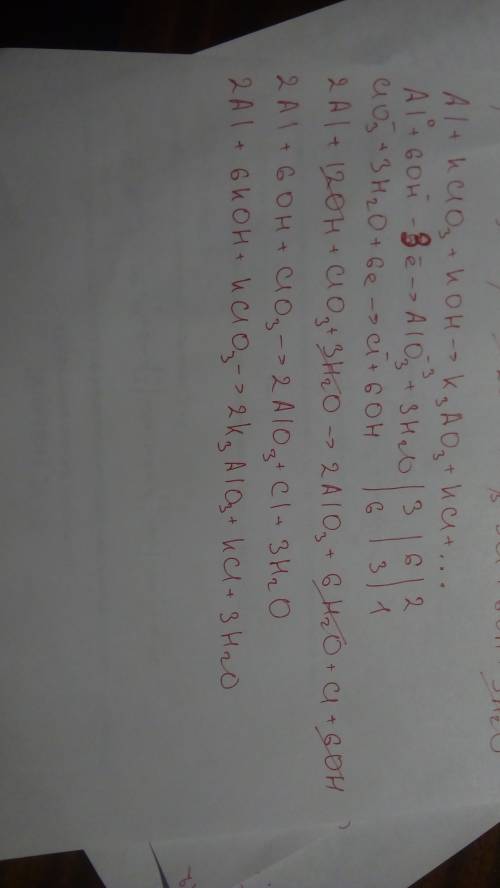 Al + KClO₃ + KOH -> K₃AO₃ + KCl + ...
Al⁰ + 6OH⁻ - 3ē -> AlO₃⁻³ + 3H₂O | 3 | 6 | 2
ClO₃⁻ + 3H₂O + 6e -> Cl⁻ + 6OH | 6 | 3 | 1
2Al + 12OH + ClO₃ + 3H₂O -> 2AlO₃ + 6H₂O + Cl + 6OH
2Al + 6OH + ClO₃ -> 2AlO₃ + Cl + 3H₂O
2Al + 6KOH + KClO₃ -> 2K₃AlO₃ + KCl + 3H₂O